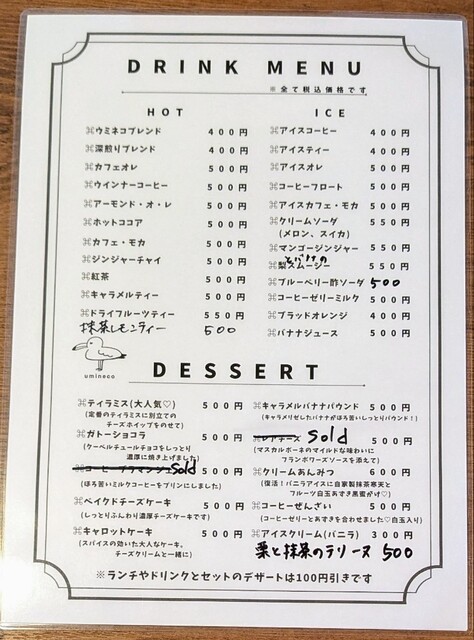 DRINK MENU
※全て税込価格です
HOT
⌘ウミネコブレンド 400円
⌘深煎りブレンド 400円
⌘カフェオレ 500円
⌘ウインナーコーヒー 500円
⌘アーモンド・オ・レ 500円
⌘ホットココア 500円
⌘カフェ・モカ 500円
⌘ジンジャーチャイ 500円
⌘紅茶 500円
⌘キャラメルティー 500円
⌘ドライフルーツティー 550円
抹茶レモンティー 500
umineco
ICE
⌘アイスコーヒー 400円
⌘アイスティー 400円
⌘アイスオレ 500円
⌘コーヒーフロート 500円
⌘アイスカフェ・モカ 500円
⌘クリームソーダ 550円
(メロン、スイカ)
⌘マンゴージンジャー 550円
⌘梨スムージー 550円
⌘ブルーベリー酢ソーダ 500
⌘コーヒーゼリーミルク 500円
⌘ブラッドオレンジ 400円
⌘バナナジュース 500円
DESSERT
⌘ティラミス(大人気♡) 500円
(定番のティラミスに別立ての
チーズホイップをのせて)
⌘ガトーショコラ 500円
(クーベルチュールチョコをしっとり
濃厚に焼き上げました)
⌘コーヒーブラマンジェ Sold 500円
(ほろ苦いミルクコーヒーをプリンにしました)
⌘ベイクドチーズケーキ 500円
(しっとりふんわり濃厚チーズケーキです)
⌘キャロットケーキ 500円
(スパイスの効いた大人なケーキ、
チーズクリームと一緒に)
⌘キャラメルバナナパウンド 500円
(キャラメリゼしたバナナがほろ苦いしっとりパウンド!)
⌘レアチーズ Sold 500円
(マスカルポーネのマイルドな味わいに
フランボワーズソースを添えて)
⌘クリームあんみつ 600円
(復活!バニラアイスに自家製抹茶寒天と
フルーツ白玉あずき黒蜜がけ♡)
⌘コーヒーぜんざい 500円
(コーヒーゼリーとあずきを合わせました♡白玉入り)
⌘アイスクリーム(バニラ) 300円
栗と抹茶のテリーヌ 500
※ランチやドリンクとセットのデザートは100円引きです